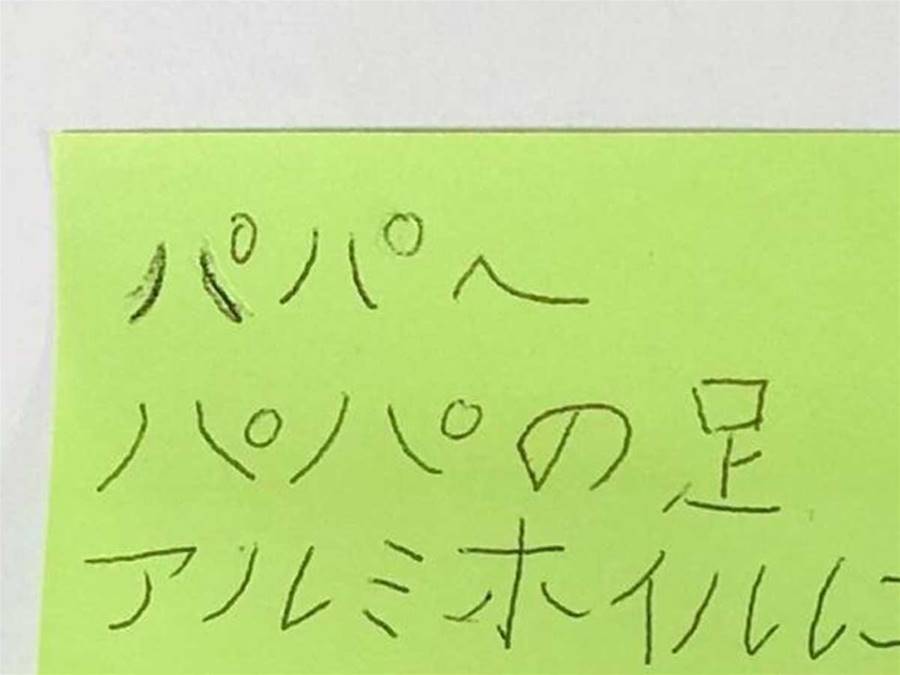 パパへ
パパの足
アルミホイルに